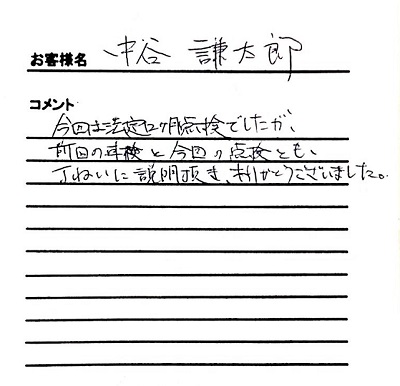 お客様名 中谷 謙太郎
コメント
今回は法定12ヶ月点検でしたが、
前回の車検と今回の点検とも、
丁ねいに説明頂き、ありがとうございました。